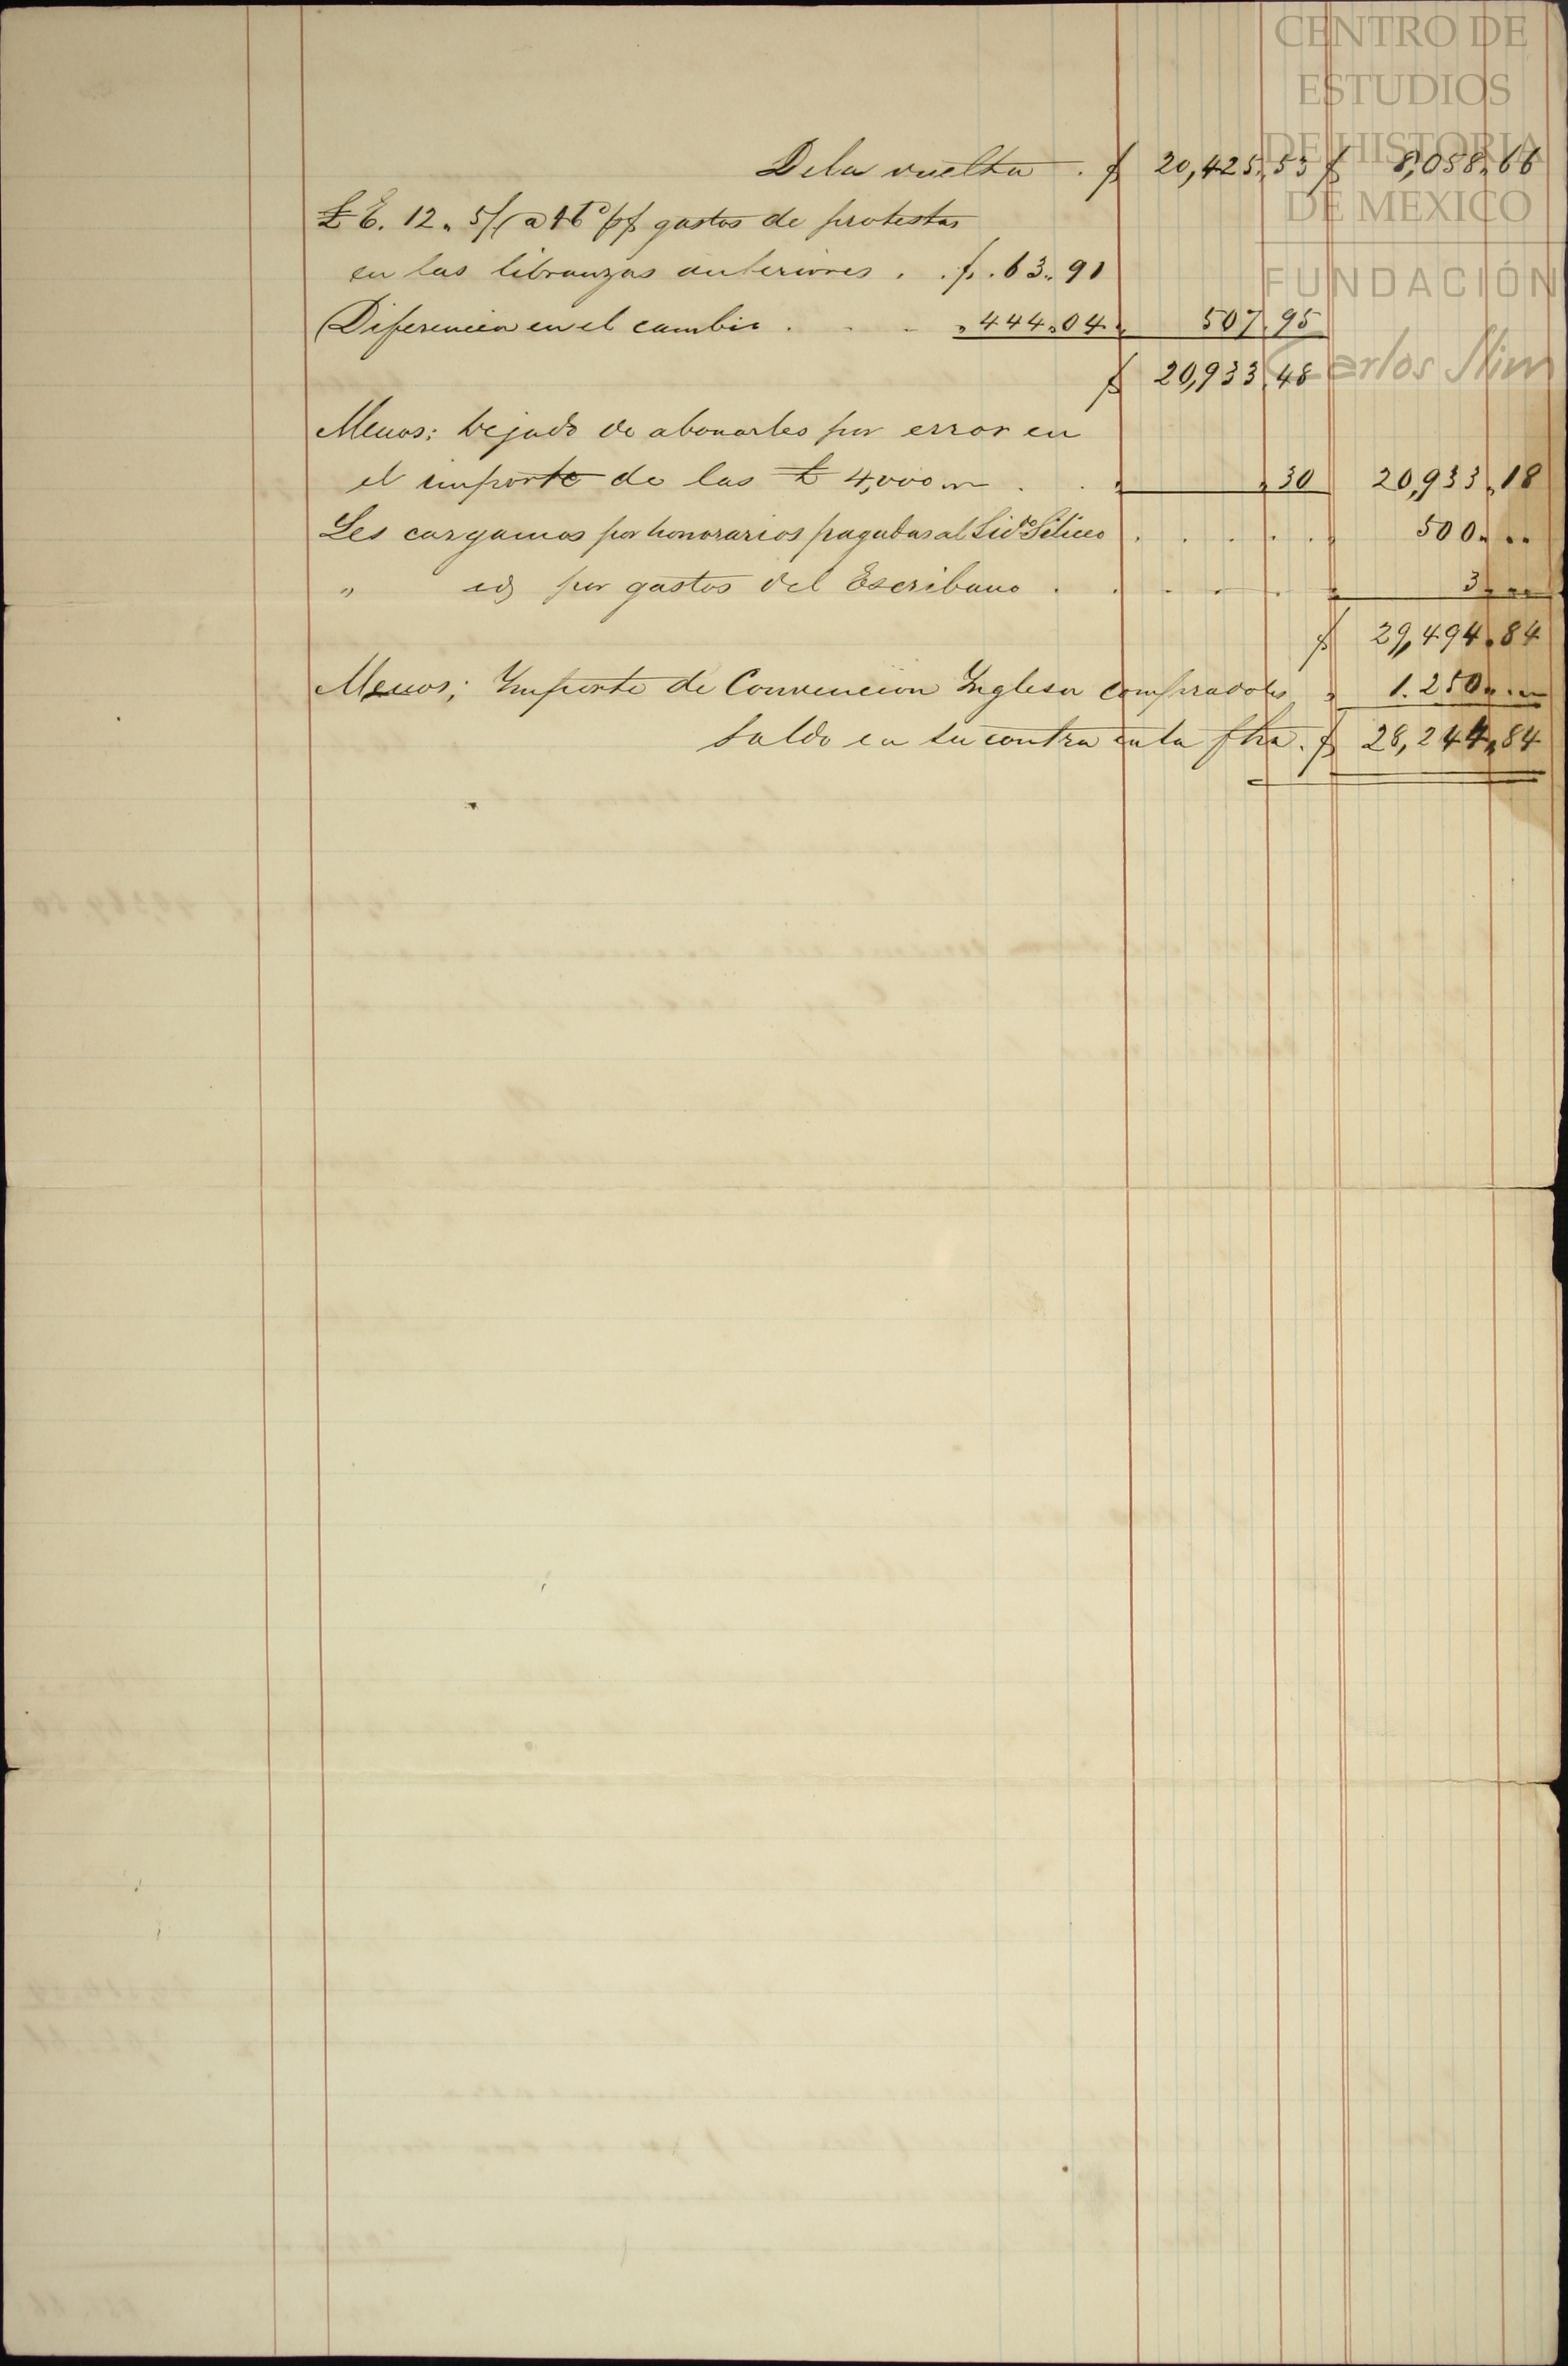 CENTRO DE
ESTUDIOS
DE HISTORIA
DE MEXICO
FUNDACIÓN
Carlos Slim
De la vuelta . $ 20,425.53 $ 8,058.66
£ E. 12. 5/ gastos de protestas
en las libranzas anteriores . . $ . 63.. 91
Diferencia en el cambio . . . " 444.04 " 507.95
$ 20,933.48
Menos: dejado de abonarles por error en
el importe de las £ 4,000 . . " " 30 20,933.18
Les cargamos por honorarios pagados al Lido Siliceo . . . . . . 500. ..
" id por gastos del Escribano . . . . . " 3. ..
$ 29,494.84
Menos; Importe de Convencion Inglesa compradoles " 1.250. ..
Saldo en su contra en la fha . $ 28,244.84